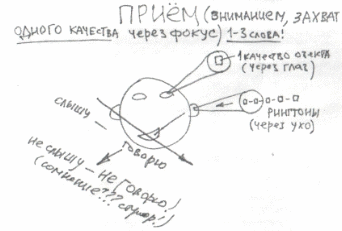 ПРИЁМ (ВНИМАНИЕМ, ЗАХВАТ
ОДНОГО КАЧЕСТВА ЧЕРЕЗ ФОКУС) 1-3 СЛОВА!
1 КАЧЕСТВО ОБЪЕКТА
(ЧЕРЕЗ ГЛАЗ)
РИНГТОНЫ
(ЧЕРЕЗ УХО)
СЛЫШУ —
ГОВОРЮ
НЕ СЛЫШУ — НЕ ГОВОРЮ)